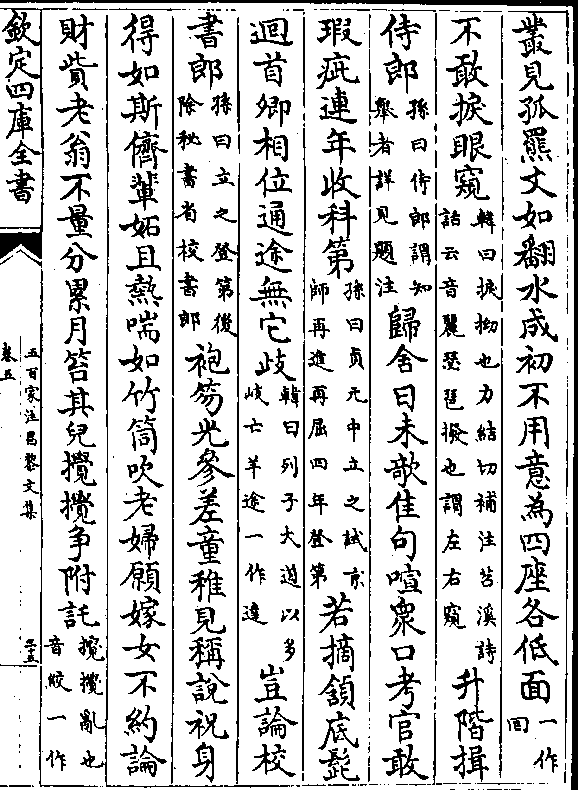 叢見孤羆文如翻水成初不用意為四座各低面一作回
不敢捩眼窺韓曰捩拗也力結切補注苕溪詩話云音麗琵琶撥也謂左右窺升階揖
侍郎孫曰侍郎謂知舉者詳見題注歸舍日未欹佳句喧衆口考官敢
瑕疵連年收科第孫曰貞元中立之試京師再進再屈四年登第若摘頷底髭
迴首卿相位通途無它歧韓曰列子大道以多岐亡羊途一作逵豈論校
書郎孫曰立之登第後除秘書省校書郎袍笏光參差童稚見稱說祝身
得如斯儕輩妬且熱喘如竹筒吹老婦願嫁女不約論
財貲老翁不量分累月笞其兒攪攪争附託攪攪亂也音絞一作
欽定四庫全書
五百家注昌黎文集
卷五